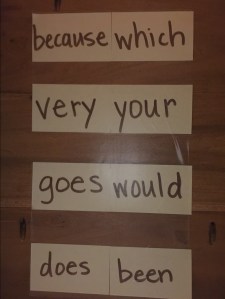 because which
very your
goes would
does been